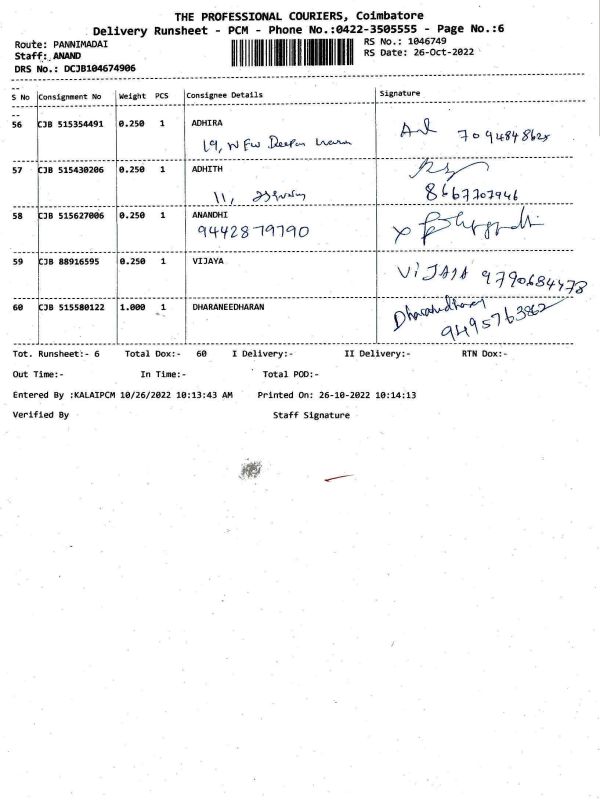 THE PROFESSIONAL COURIERS, Coimbatore
Delivery Runsheet - PCM - Phone No.:0422-3505555 - Page No.:6
Route: PANNIMADAI RS No.: 1046749
Staff: ANAND RS Date: 26-Oct-2022
DRS No.: DCJB104674906
S No Consignment No Weight PCS Consignee Details Signature
56 CJB 515354491 0.250 1 ADHIRA
19, N
57 CJB 515430206 0.250 1 ADHITH
11, 8667707946
58 CJB 515627006 0.250 1 ANANDHI
9442879790
59 CJB 88916595 0.250 1 VIJAYA
ViJAYA 9790684478
60 CJB 515580122 1.000 1 DHARANEEDHARAN Dharanidharan
9495763862
Tot. Runsheet:- 6 Total Dox:- 60 I Delivery:- II Delivery:- RTN Dox:-
Out Time:- In Time:- Total POD:-
Entered By :KALAIPCM 10/26/2022 10:13:43 AM Printed On: 26-10-2022 10:14:13
Verified By Staff Signature